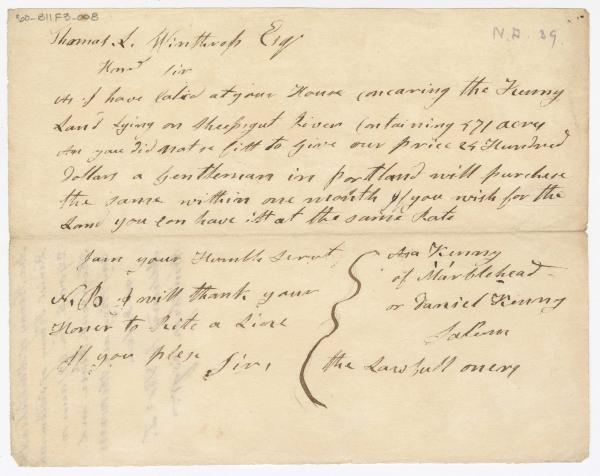 60-B11F3-008
N.D. 39.
Thomas L. Winthrop Esq
Hond Sir
As I have Called at your House concaring the Kenny
Land Lying on Sheepsgut River Containing 571 acres
As you did not se fitt to Give our price 25 Hundred
Dollars a Gentleman in portland will purchase
the same within one month If you wish for the
Land you can have itt at the same Rate
I am your Humble Servt
N. B I will thank your
Honer to Rite a Line
if you plese Sir,
Asa Kenny
of Marblehead
or Daniel Kenny
Salem
the Lawfull oners